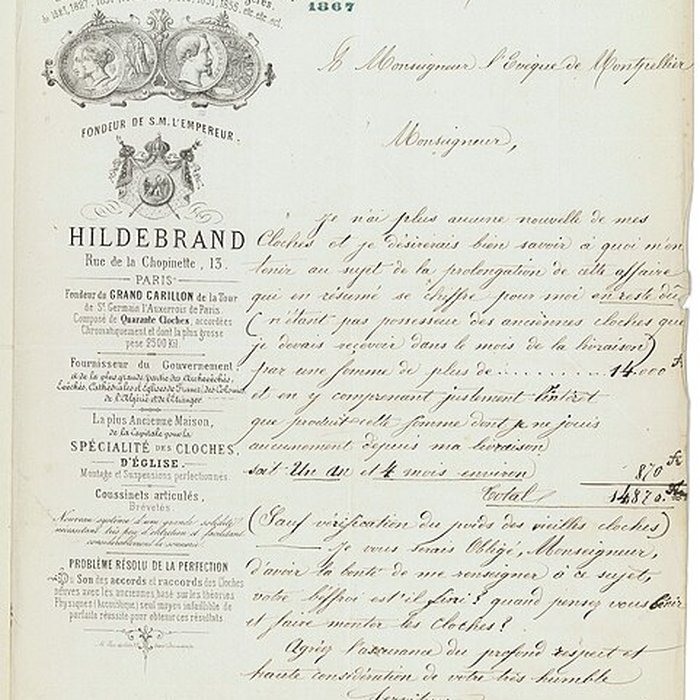 1867
FONDEUR DE S.M. L'EMPEREUR.
HILDEBRAND
Rue de la Chopinette, 13.
PARIS
Fondeur du GRAND CARILLON de la Tour
de St. Germain l'Auxerrois de Paris.
Composé de Quarante Cloches, accordées
Chromatiquement et dont la plus grosse
pèse 2500 Kil.
Fournisseur du Gouvernement
et de la plus grande partie des Archevêchés,
Evêchés, Cathédrales et Eglises de France, des Colonies
de l'Algérie et de l'Etranger.
La plus Ancienne Maison,
de la Capitale pour la
SPÉCIALITÉ DES CLOCHES,
D'ÉGLISE.
Montage et Suspensions perfectionnés.
Coussinets articulés,
Brévetés.
Nouveau système d'une grande solidité
nécessitant très peu d'entretien et facilitant
considérablement la sonnerie.
PROBLÈME RÉSOLU DE LA PERFECTION
Du Son des accords et raccords des Cloches
neuves avec les anciennes basé sur les théories
Physiques (acoustique) seul moyen infaillible de
parfaite réussite pour obtenir ces résultats
A Monseigneur l'Evêque de Montpellier
Monseigneur,
Je n'ai plus aucune nouvelle de mes
Cloches et je désirerais bien savoir à quoi m'en
tenir au sujet de la prolongation de cette affaire
que en résumé se chiffre pour moi en reste dû
(n'étant pas possesseur des anciennes cloches que
je devais recevoir dans le mois de la livraison)
par une somme de plus de .......... 14.000 Fr
et en y comprenant justement l'intérêt
que produit cette somme dont je ne jouis
aucunement depuis ma livraison
soit Un an et 4 mois environ 870 Fr
Total 14870 Fr
(Sauf vérification du poids des vieilles cloches)
Je vous serais Obligé, Monseigneur,
d'avoir la bonté de me renseigner à ce sujet,
votre beffroi est'il fini? quand pensez vous bénir
et faire monter les Cloches?
Agréez l'assurance du profond respect et
haute considération de votre très humble
Serviteur